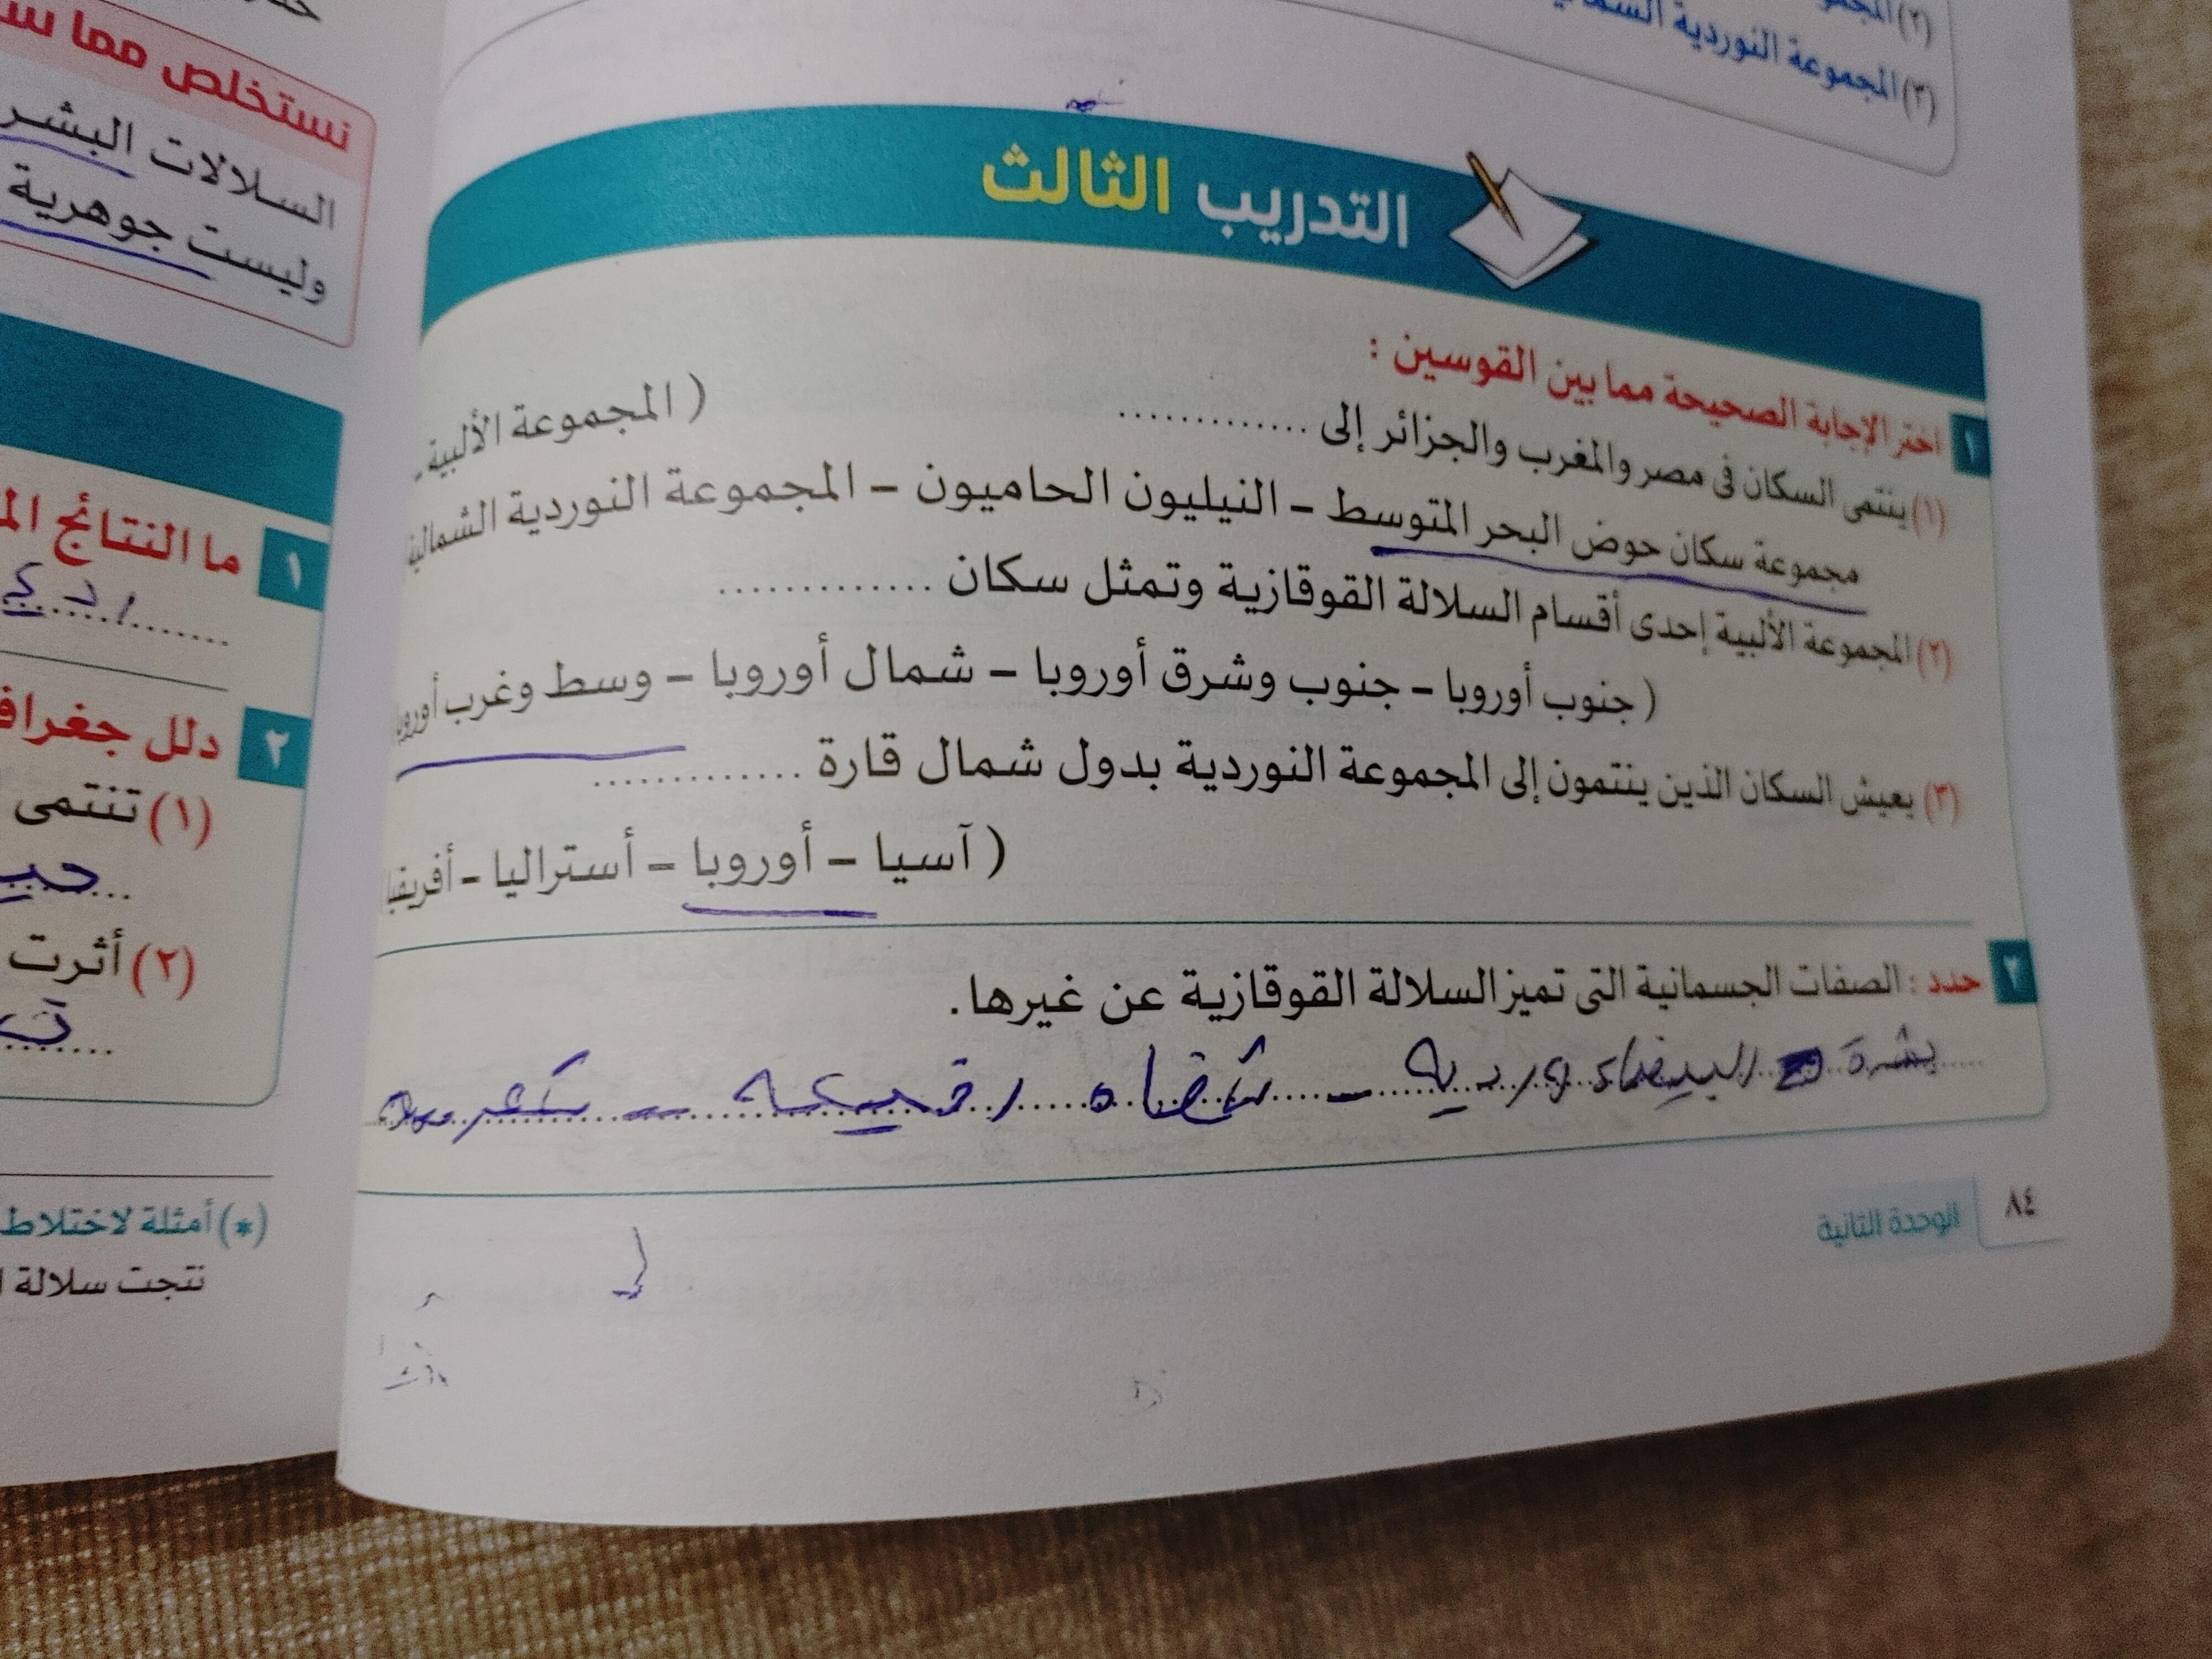 (٢) المجمو
(٣) المجموعة النوردية الشمالي
التدريب الثالث
١ اختر الإجابة الصحيحة مما بين القوسين :
(١) ينتمى السكان فى مصر والمغرب والجزائر إلى .............
( المجموعة الألبية -
مجموعة سكان حوض البحر المتوسط - النيليون الحاميون - المجموعة النوردية الشمالية
(٢) المجموعة الألبية إحدى أقسام السلالة القوقازية وتمثل سكان .............
( جنوب أوروبا - جنوب وشرق أوروبا - شمال أوروبا - وسط وغرب أوروبا
(٣) يعيش السكان الذين ينتمون إلى المجموعة النوردية بدول شمال قارة .............
( آسيا - أوروبا - أستراليا - أفريقيا
٢ حدد : الصفات الجسمانية التى تميز السلالة القوقازية عن غيرها.
بشرة البيضاء وردية - شفاه رقيقة - شعر
٨٤ الوحدة الثانية
نستخلص مما س
السلالات البشر
وليست جوهرية
١ ما النتائج الم
٢ دلل جغراف
(١) تنتمى
(٢) أثرت
(*) أمثلة لاختلاط
نتجت سلالة ا